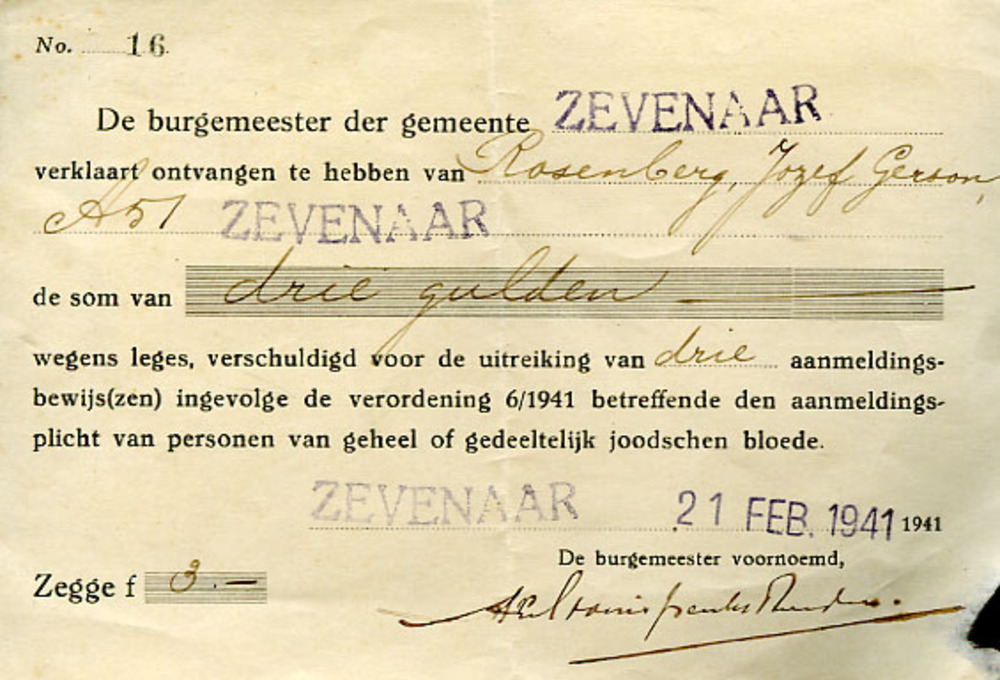 No. 16
De burgemeester der gemeente ZEVENAAR
verklaart ontvangen te hebben van Rosenberg, Jozef Gerson,
A 51 ZEVENAAR
de som van drie gulden
wegens leges, verschuldigd voor de uitreiking van drie aanmeldings-
bewijs(zen) ingevolge de verordening 6/1941 betreffende den aanmeldings-
plicht van personen van geheel of gedeeltelijk joodschen bloede.
ZEVENAAR 21 FEB. 1941 1941
De burgemeester voornoemd,
Zegge f 3.—